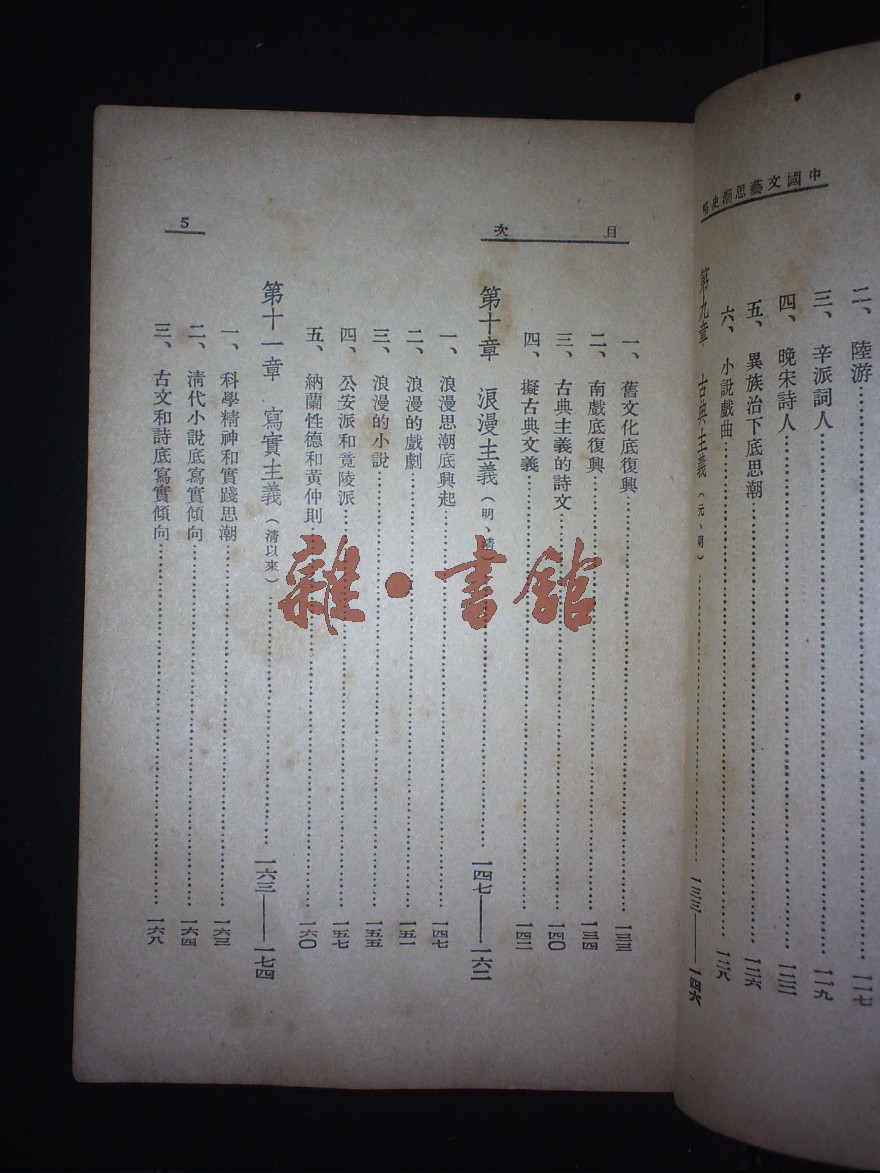 中國文藝思潮史略
二、陸游 一一七
三、辛派詞人 一一九
四、晚宋詩人 一二二
五、異族治下底思潮 一二六
六、小說戲曲 一二八
第九章 古典主義（元、明） 一三三——一四六
目次
5
一、舊文化底復興 一三三
二、南戲底復興 一三四
三、古典主義的詩文 一四〇
四、擬古典文義 一四二
第十章 浪漫主義（明、清） 一四七——一六二
一、浪漫思潮底興起 一四七
二、浪漫的戲劇 一五一
三、浪漫的小說 一五五
四、公安派和竟陵派 一五七
五、納蘭性德和黃仲則 一六〇
第十一章 寫實主義（清以來） 一六三——一七四
一、科學精神和實踐思潮 一六三
二、清代小說底寫實傾向 一六四
三、古文和詩底寫實傾向 一六八
雜·書館